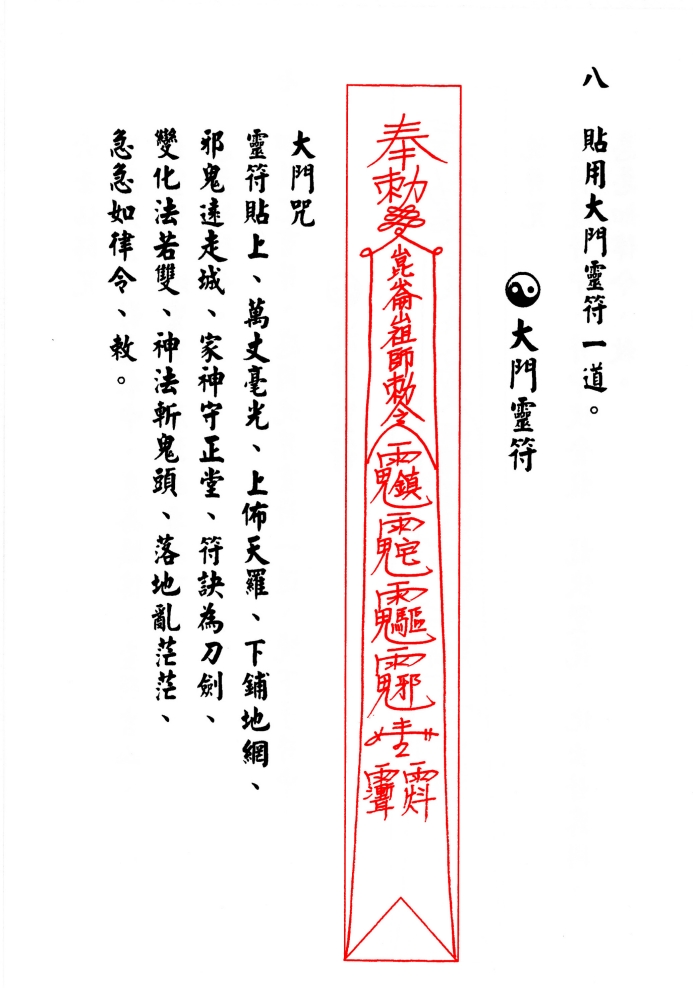 八 貼用大門靈符一道。
大門靈符
奉勅
崑崙山祖師勅令
鎮
宅
驅
邪
大門咒
靈符貼上、萬丈毫光、上佈天羅、下鋪地網、
邪鬼遠走城、家神守正堂、符訣為刀劍、
變化法若雙、神法斬鬼頭、落地亂茫茫、
急急如律令、敕。